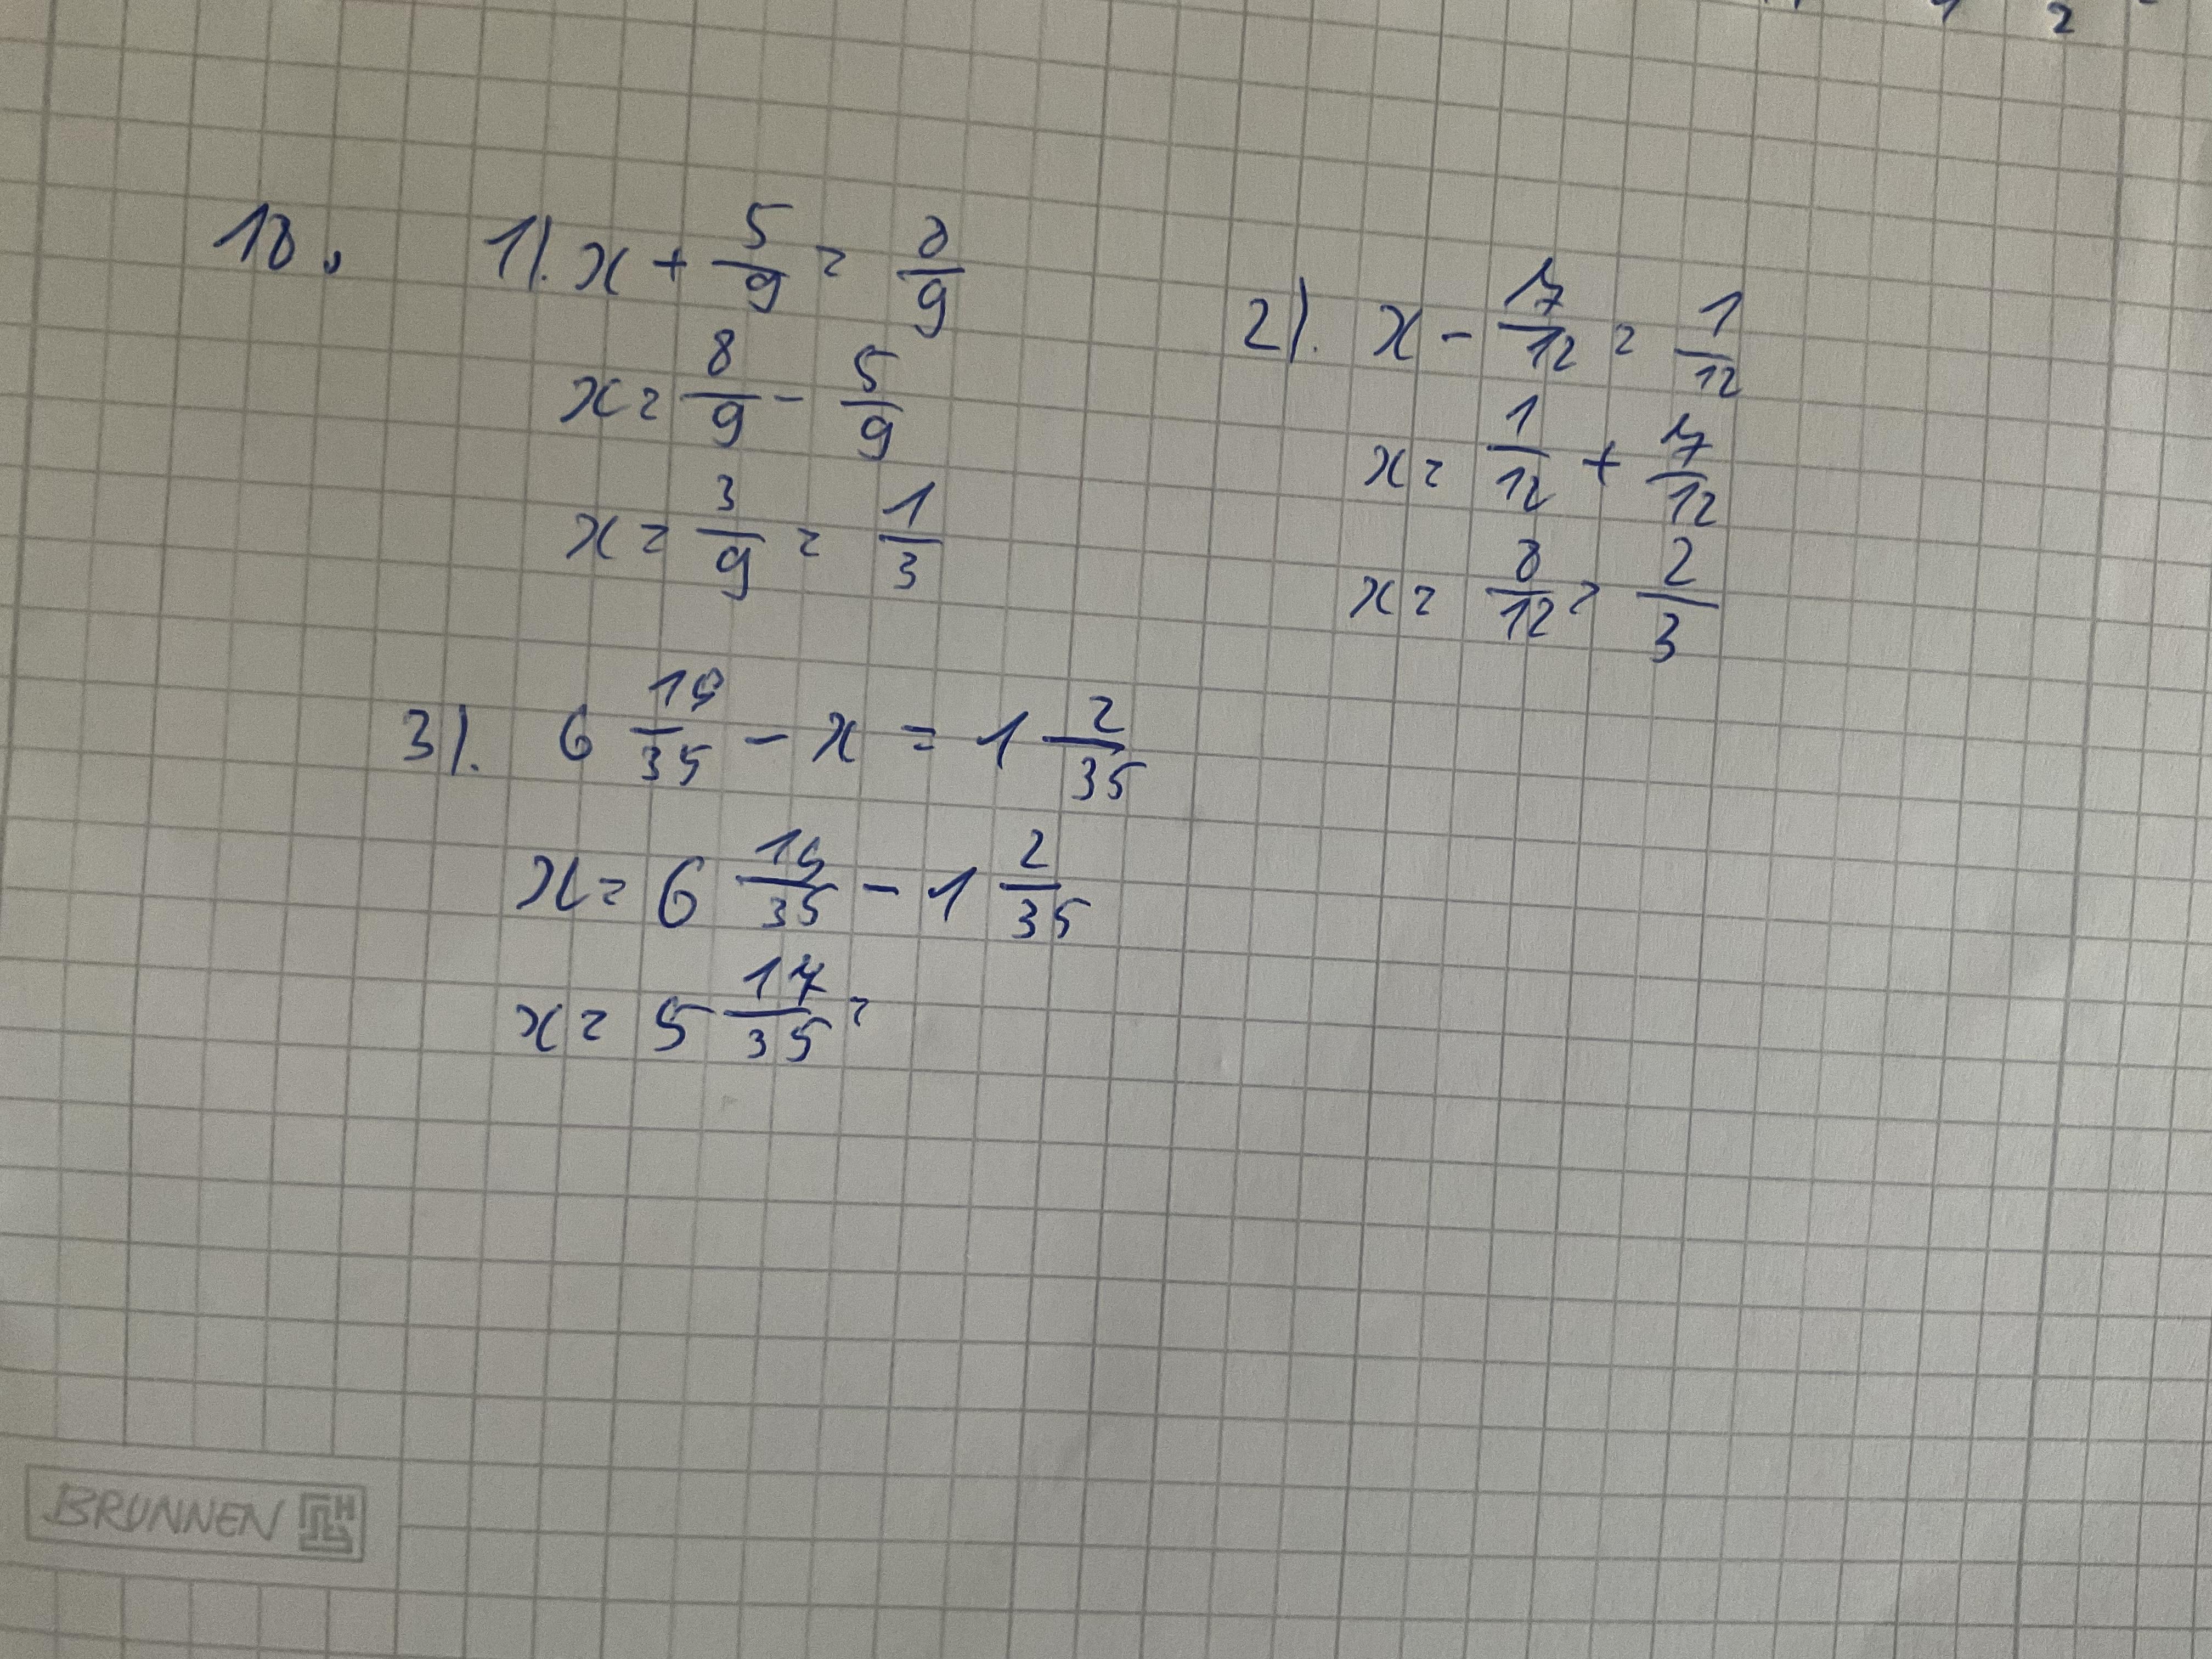 1 2
18. 1). x + 5/9 = 8/9
x = 8/9 - 5/9
x = 3/9 = 1/3
2). x - 7/12 = 1/12
x = 1/12 + 7/12
x = 8/12 = 2/3
3). 6 19/35 - x = 1 2/35
x = 6 19/35 - 1 2/35
x = 5 17/35 =
BRUNNEN